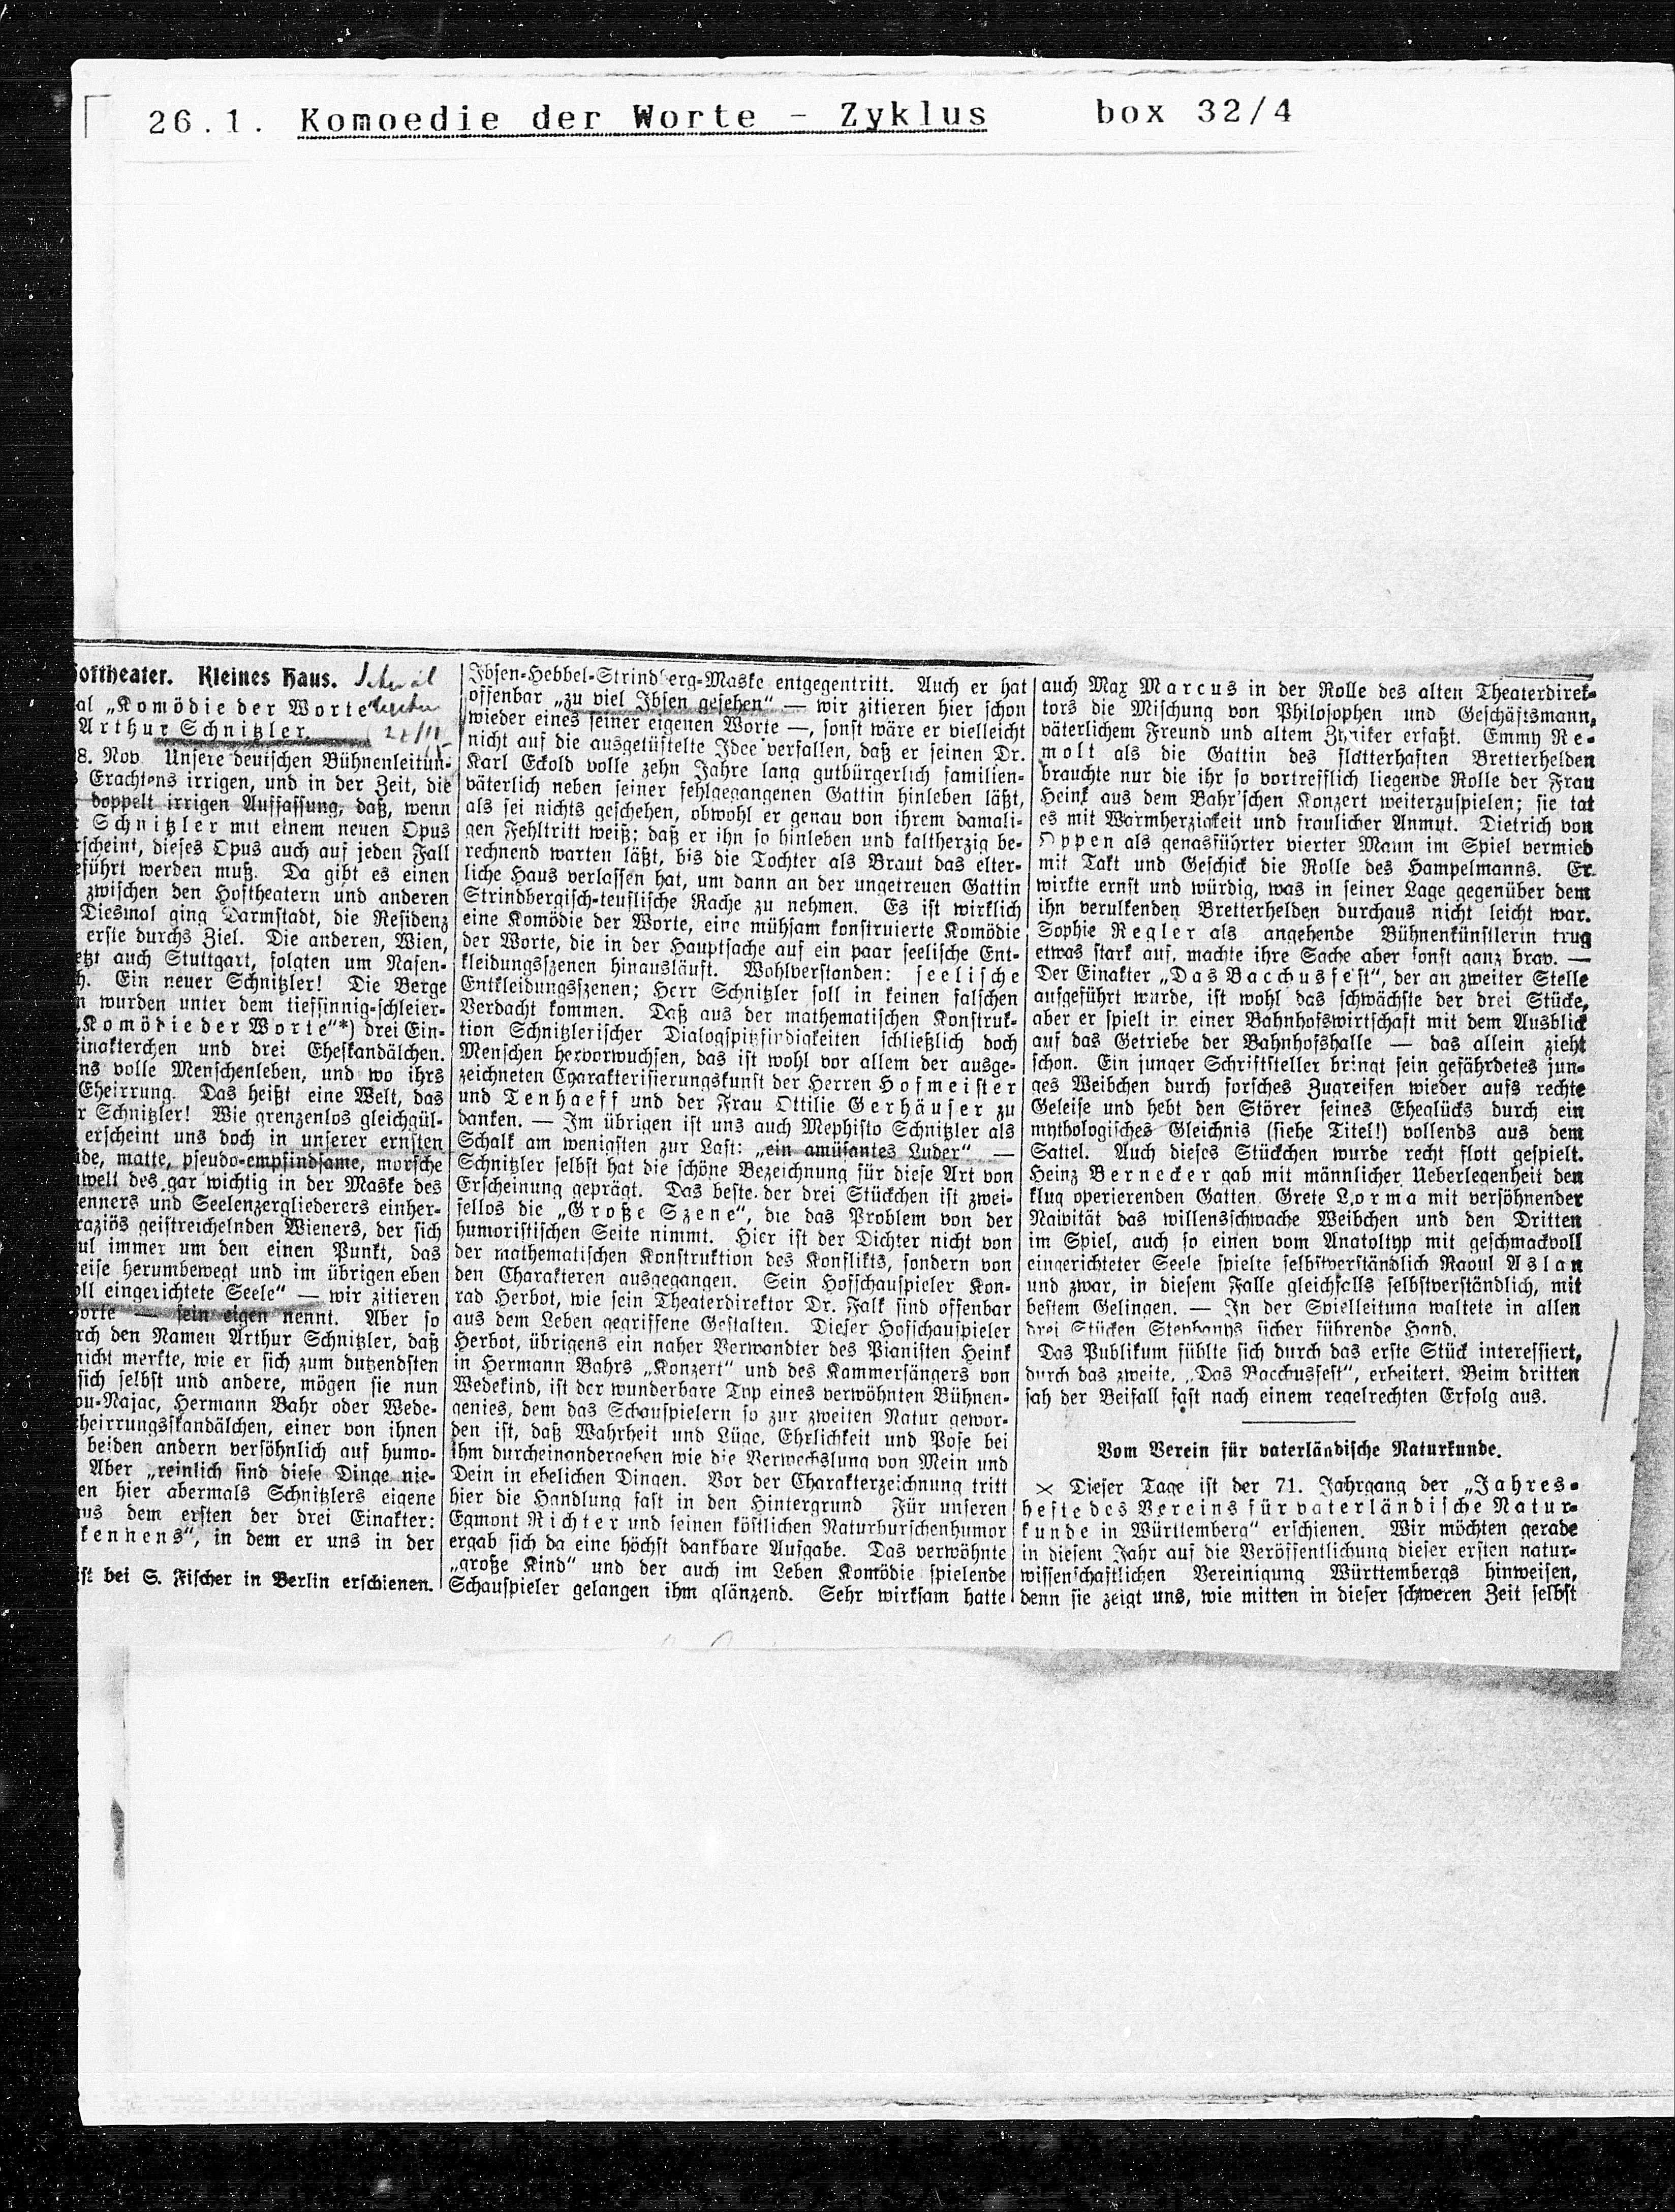 26.1. Komoedie der Worte - Zyklus box 32/4
oftheater. Kleines Haus.
al „Komödie der Worte"
Arthur Schnitzler.
8. Nov. Unsere deutschen Bühnenleitun-
s Erachtens irrigen, und in der Zeit, die
doppelt irrigen Auffassung, daß, wenn
r Schnitzler mit einem neuen Opus
rscheint, dieses Opus auch auf jeden Fall
eführt werden muß. Da gibt es einen
zwischen den Hoftheatern und anderen
Diesmal ging Darmstadt, die Residenz
erste durchs Ziel. Die anderen, Wien,
etzt auch Stuttgart, folgten um Nasen-
h. Ein neuer Schnitzler! Die Berge
n wurden unter dem tiefsinnig-schleier-
„Komödie der Worte"*) drei Ein-
Einakterchen und drei Eheskandälchen.
ns volle Menschenleben, und wo ihrs
Eheirrung. Das heißt eine Welt, das
r Schnitzler! Wie grenzenlos gleichgül-
erscheint uns doch in unserer ernsten
de, matte, pseudo-empfindsame, morsche
welt des gar wichtig in der Maske des
enners und Seelenzergliederers einher-
raziös geistreichelnden Wieners, der sich
ul immer um den einen Punkt, das
reise herumbewegt und im übrigen eben
oll eingerichtete Seele" — wir zitieren
orte — sein eigen nennt. Aber so
rch den Namen Arthur Schnitzler, daß
nicht merkte, wie er sich zum dutzendsten
sich selbst und andere, mögen sie nun
ou-Najac, Hermann Bahr oder Wede-
heirrungsskandälchen, einer von ihnen
beiden andern versöhnlich auf humo-
Aber „reinlich sind diese Dinge nie-
en hier abermals Schnitzlers eigene
us dem ersten der drei Einakter:
kennens", in dem er uns in der
ist bei S. Fischer in Berlin erschienen.
Ibsen-Hebbel-Strindberg-Maske entgegentritt. Auch er hat
offenbar „zu viel Ibsen gesehen" — wir zitieren hier schon
wieder eines seiner eigenen Worte —, sonst wäre er vielleicht
nicht auf die ausgetüftelte Idee verfallen, daß er seinen Dr.
Karl Eckold volle zehn Jahre lang gutbürgerlich familien-
väterlich neben seiner fehlgegangenen Gattin hinleben läßt,
als sei nichts geschehen, obwohl er genau von ihrem damali-
gen Fehltritt weiß; daß er ihn so hinleben und kaltherzig be-
rechnend warten läßt, bis die Tochter als Braut das elter-
liche Haus verlassen hat, um dann an der ungetreuen Gattin
Strindbergisch-teuflische Rache zu nehmen. Es ist wirklich
eine Komödie der Worte, eine mühsam konstruierte Komödie
der Worte, die in der Hauptsache auf ein paar seelische Ent-
kleidungsszenen hinausläuft. Wohlverstanden: seelische
Entkleidungsszenen; Herr Schnitzler soll in keinen falschen
Verdacht kommen. Daß aus der mathematischen Konstruk-
tion Schnitzlerischer Dialogspitzfindigkeiten schließlich doch
Menschen hervorwuchsen, das ist wohl vor allem der ausge-
zeichneten Charakterisierungskunst der Herren Hofmeister
und Tenhaeff und der Frau Ottilie Gerhäuser zu
danken. — Im übrigen ist uns auch Mephisto Schnitzler als
Schalk am wenigsten zur Last: „ein amüsantes Luder" —
Schnitzler selbst hat die schöne Bezeichnung für diese Art von
Erscheinung geprägt. Das beste der drei Stückchen ist zwei-
fellos die „Große Szene", die das Problem von der
humoristischen Seite nimmt. Hier ist der Dichter nicht von
der mathematischen Konstruktion des Konflikts, sondern von
den Charakteren ausgegangen. Sein Hofschauspieler Kon-
rad Herbot, wie sein Theaterdirektor Dr. Falk sind offenbar
aus dem Leben gegriffene Gestalten. Dieser Hofschauspieler
Herbot, übrigens ein naher Verwandter des Pianisten Heink
in Hermann Bahrs „Konzert" und des Kammersängers von
Wedekind, ist der wunderbare Typ eines verwöhnten Bühnen-
genies, dem das Schauspielern so zur zweiten Natur gewor-
den ist, daß Wahrheit und Lüge, Ehrlichkeit und Pose bei
ihm durcheinandergehen wie die Verwechslung von Mein und
Dein in ehelichen Dingen. Vor der Charakterzeichnung tritt
hier die Handlung fast in den Hintergrund Für unseren
Egmont Richter und seinen köstlichen Naturburschenhumor
ergab sich da eine höchst dankbare Aufgabe. Das verwöhnte
„große Kind" und der auch im Leben Komödie spielende
Schauspieler gelangen ihm glänzend. Sehr wirksam hatte
auch Max Marcus in der Rolle des alten Theaterdirek-
tors die Mischung von Philosophen und Geschäftsmann,
väterlichem Freund und altem Zyniker erfaßt. Emmy Re-
molt als die Gattin des flatterhaften Bretterhelden
brauchte nur die ihr so vortrefflich liegende Rolle der Frau
Heink aus dem Bahr'schen Konzert weiterzuspielen; sie tat
es mit Warmherzigkeit und fraulicher Anmut. Dietrich von
Oppen als genasführter vierter Mann im Spiel vermied
mit Takt und Geschick die Rolle des Hampelmanns. Er
wirkte ernst und würdig, was in seiner Lage gegenüber dem
ihn verulkenden Bretterhelden durchaus nicht leicht war.
Sophie Regler als angehende Bühnenkünstlerin trug
etwas stark auf, machte ihre Sache aber sonst ganz brav. —
Der Einakter „Das Bacchusfest", der an zweiter Stelle
aufgeführt wurde, ist wohl das schwächste der drei Stücke,
aber er spielt in einer Bahnhofswirtschaft mit dem Ausblick
auf das Getriebe der Bahnhofshalle — das allein zieht
schon. Ein junger Schriftsteller bringt sein gefährdetes jun-
ges Weibchen durch forsches Zugreifen wieder aufs rechte
Geleise und hebt den Störer seines Eheglücks durch ein
mythologisches Gleichnis (siehe Titel!) vollends aus dem
Sattel. Auch dieses Stückchen wurde recht flott gespielt.
Heinz Bernecker gab mit männlicher Ueberlegenheit den
klug operierenden Gatten. Grete Lorma mit versöhnender
Naivität das willensschwache Weibchen und den Dritten
im Spiel, auch so einen vom Anatoltyp mit geschmackvoll
eingerichteter Seele spielte selbstverständlich Raoul Aslan
und zwar, in diesem Falle gleichfalls selbstverständlich, mit
bestem Gelingen. — In der Spielleitung waltete in allen
drei Stücken Stephanys sicher führende Hand.
Das Publikum fühlte sich durch das erste Stück interessiert,
durch das zweite, „Das Bacchusfest", erheitert. Beim dritten
sah der Beifall fast nach einem regelrechten Erfolg aus.
Vom Verein für vaterländische Naturkunde.
× Dieser Tage ist der 71. Jahrgang der „Jahres-
hefte des Vereins für vaterländische Natur-
kunde in Württemberg" erschienen. Wir möchten gerade
in diesem Jahr auf die Veröffentlichung dieser ersten natur-
wissenschaftlichen Vereinigung Württembergs hinweisen,
denn sie zeigt uns, wie mitten in dieser schweren Zeit selbst